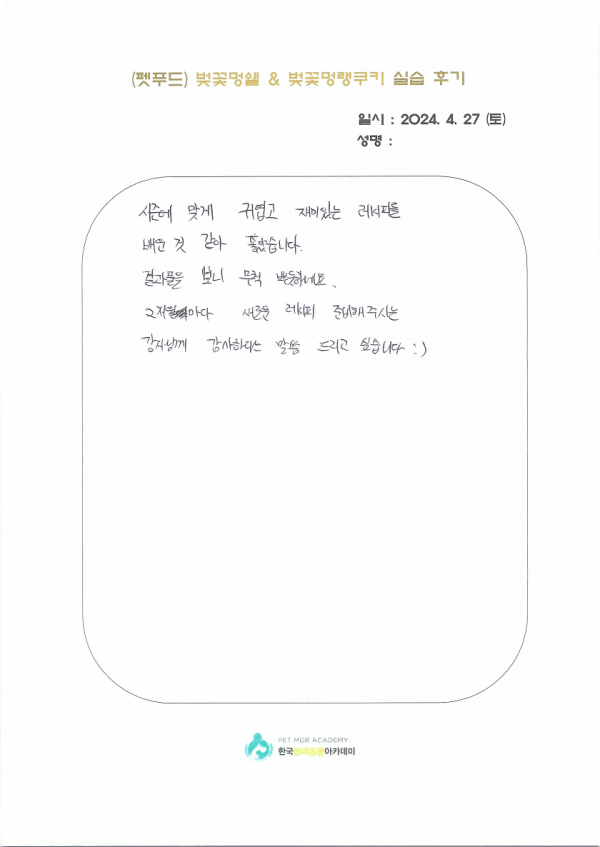 (펫푸드) 벚꽃멍쉘 & 벚꽃멍랭쿠키 실습 후기
일시 : 2024. 4. 27 (토)
성명 :
시즌에 맞게 귀엽고 재미있는 레시피를
배운 것 같아 좋았습니다.
결과물을 보니 무척 뿌듯하네요.
마다 새로운 레시피 준비해주시는
강사님께 감사하다는 말씀 드리고 싶습니다 :)
PET MGR ACADEMY
한국반려동물아카데미